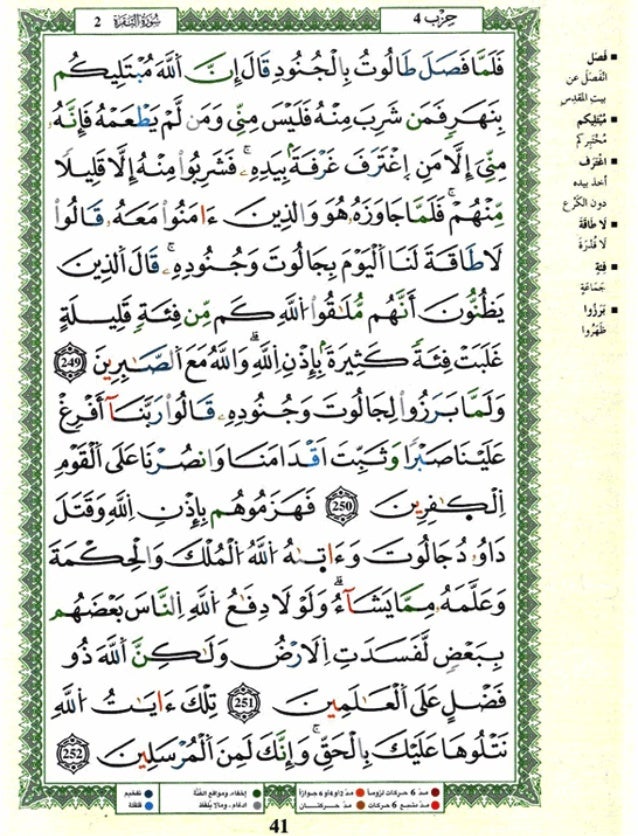 حِزب 4
سُورَةُ البَقَرَة 2
فَلَمَّا فَصَلَ طَالُوتُ بِالْجُنُودِ قَالَ إِنَّ اَللَّهَ مُبْتَلِيكُم
بِنَهَرٍ فَمَن شَرِبَ مِنْهُ فَلَيْسَ مِنِّي وَمَن لَّمْ يَطْعَمْهُ فَإِنَّهُۥ
مِنِّيَ إِلَّا مَنِ اِغْتَرَفَ غَرْفَةَۢ بِيَدِهِۦۚ فَشَرِبُواْ مِنْهُ إِلَّا قَلِيلًا
مِّنْهُمْۚ فَلَمَّا جَاوَزَهُۥ هُوَ وَالذِينَ ءَامَنُواْ مَعَهُۥ قَالُواْ
لَا طَاقَةَ لَنَا اَلْيَوْمَ بِجَالُوتَ وَجُنُودِهِۦۚ قَالَ اَلذِينَ
يَظُنُّونَ أَنَّهُم مُّلَٰقُواْ اُللَّهِ كَم مِّن فِئَةٍ قَلِيلَةٍ
غَلَبَتْ فِئَةً كَثِيرَةَۢ بِإِذْنِ اِللَّهِۗ وَاللَّهُ مَعَ اَلصَّٰبِرِينَ 249
وَلَمَّا بَرَزُواْ لِجَالُوتَ وَجُنُودِهِۦ قَالُواْ رَبَّنَآ أَفْرِغْ
عَلَيْنَا صَبْرًا وَثَبِّتَ اَقْدَامَنَا وَانصُرْنَا عَلَى اَلْقَوْمِ
اِلْكٰفِرِينَ 250 فَهَزَمُوهُم بِإِذْنِ اِللَّهِ وَقَتَلَ
دَاوُۥدُ جَالُوتَ وَءَاتٰىٰهُ اُللَّهُ اُلْمُلْكَ وَالْحِكْمَةَ
وَعَلَّمَهُۥ مِمَّا يَشَآءُۗ وَلَوْلَا دِفَٰعُ اُللَّهِ اِلنَّاسَ بَعْضَهُم
بِبَعْضٍ لَّفَسَدَتِ اِلَارْضُ وَلَٰكِنَّ اَللَّهَ ذُو
فَضْلٍ عَلَى اَلْعَٰلَمِينَ 251 تِلْكَ ءَايَٰتُ اُللَّهِ
نَتْلُوهَا عَلَيْكَ بِالْحَقِّۚ وَإِنَّكَ لَمِنَ اَلْمُرْسَلِينَ 252
■ فَصَلَ
انْفَصَلَ عن
بيتِ المقدِس
■ مُبْتَلِيكُم
مُخْتَبِرُكُم
■ اغْتَرَفَ
أخذ بيده
دون الكَرْع
■ لَا طَاقَةَ
لَا قُدْرَةَ
■ فِئَةٍ
جَمَاعَةٍ
■ بَرَزُوا
ظَهَرُوا
مدّ 6 حركات لزوماً
مدّ 2 أو 4 أو 6 جوازاً
إخفاء، ومواقع الغُنَّة
تفخيم
مدّ مشبع 6 حركات
مدّ حركتان
ادغام، وما لا يُلفظ
قلقلة
41